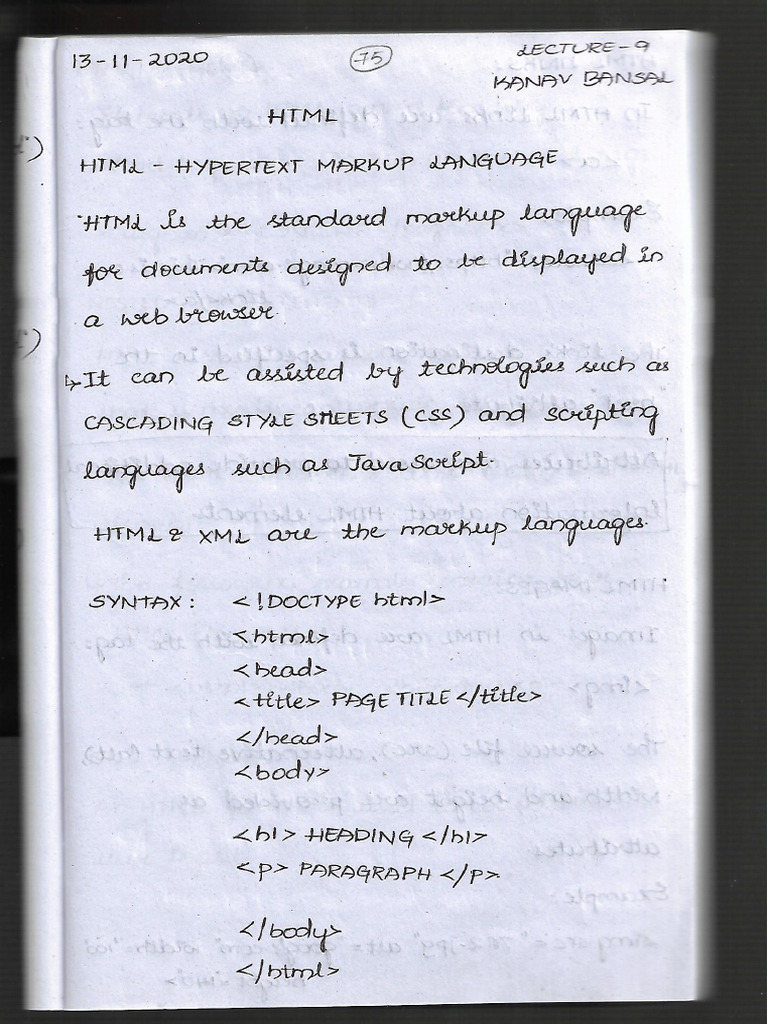 13-11-2020
75
LECTURE-9
KANAV BANSAL
HTML
HTML - HYPERTEXT MARKUP LANGUAGE
HTML is the standard markup language
for documents designed to be displayed in
a web browser.
↳ It can be assisted by technologies such as
CASCADING STYLE SHEETS (CSS) and scripting
languages such as JavaScript.
HTML & XML are the markup languages.
SYNTAX : <!DOCTYPE html>
<html>
<head>
<title> PAGE TITLE </title>
</head>
<body>
<h1> HEADING </h1>
<p> PARAGRAPH </p>
</body>
</html>